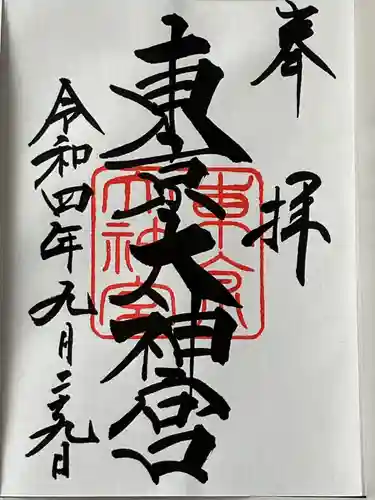 奉拝
東京大神宮
東京大神宮
令和四年九月二十九日